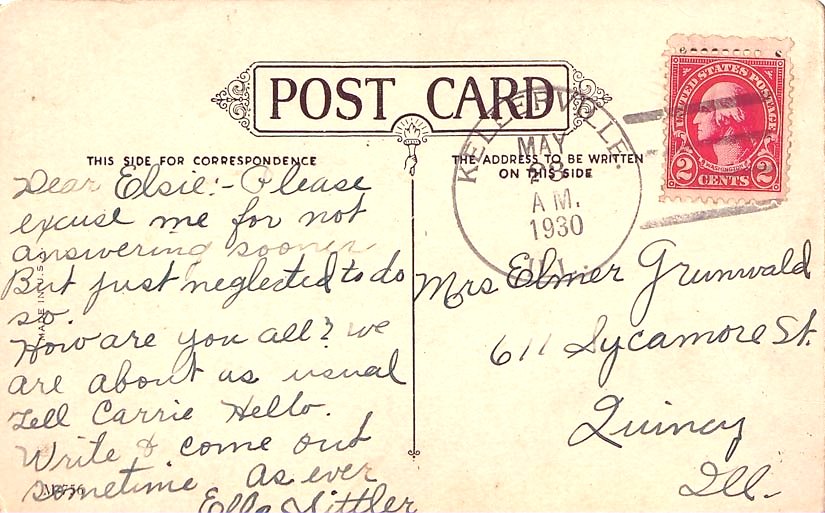 POST CARD
THIS SIDE FOR CORRESPONDENCE
THE ADDRESS TO BE WRITTEN
ON THIS SIDE
KELLERVILLE.
MAY
28
A M.
1930
ILL.
UNITED STATES POSTAGE
WASHINGTON
2 CENTS 2
Dear Elsie:- Please
excuse me for not
answering sooner
But just neglected to do
so.
How are you all? we
are about as usual
Tell Carrie Hello.
Write & come out
sometime As ever
Ella Sittler
MADE IN U.S.
Mrs Elmer Grunwald
611 Sycamore St.
Quincy
Ill.